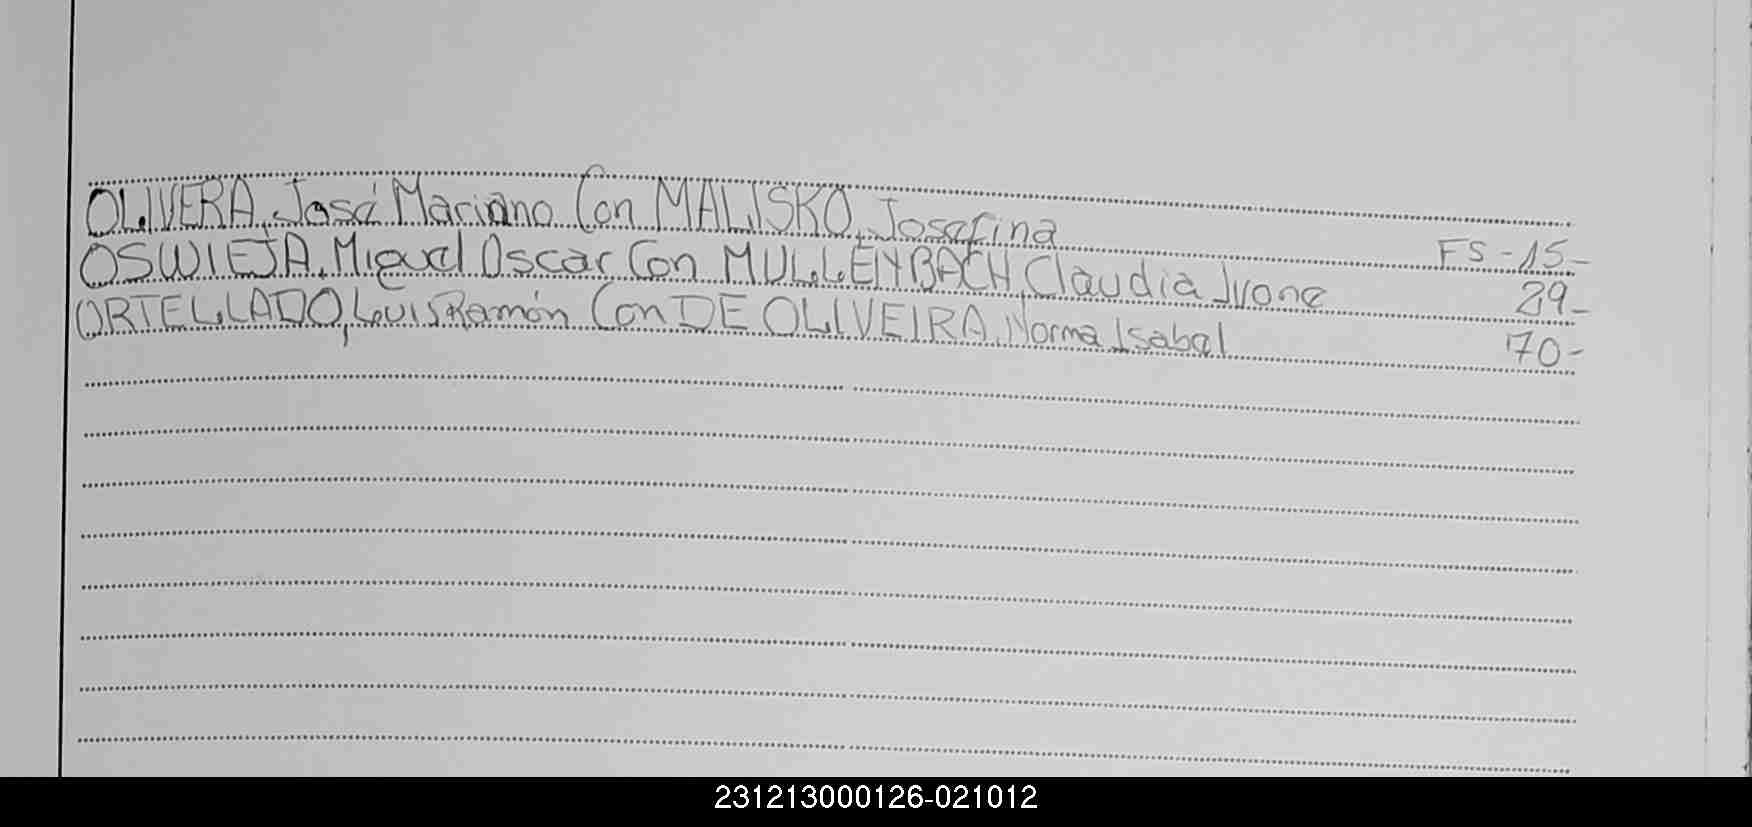 OLIVERA, José Mariano Con MALISKO, Josefina FS-15-
OSWIEJA, Miguel Oscar Con MULLENBACH, Claudia Ivone 29-
ORTELLADO, Luis Ramón Con DE OLIVEIRA, Norma Isabel 70-
231213000126-021012